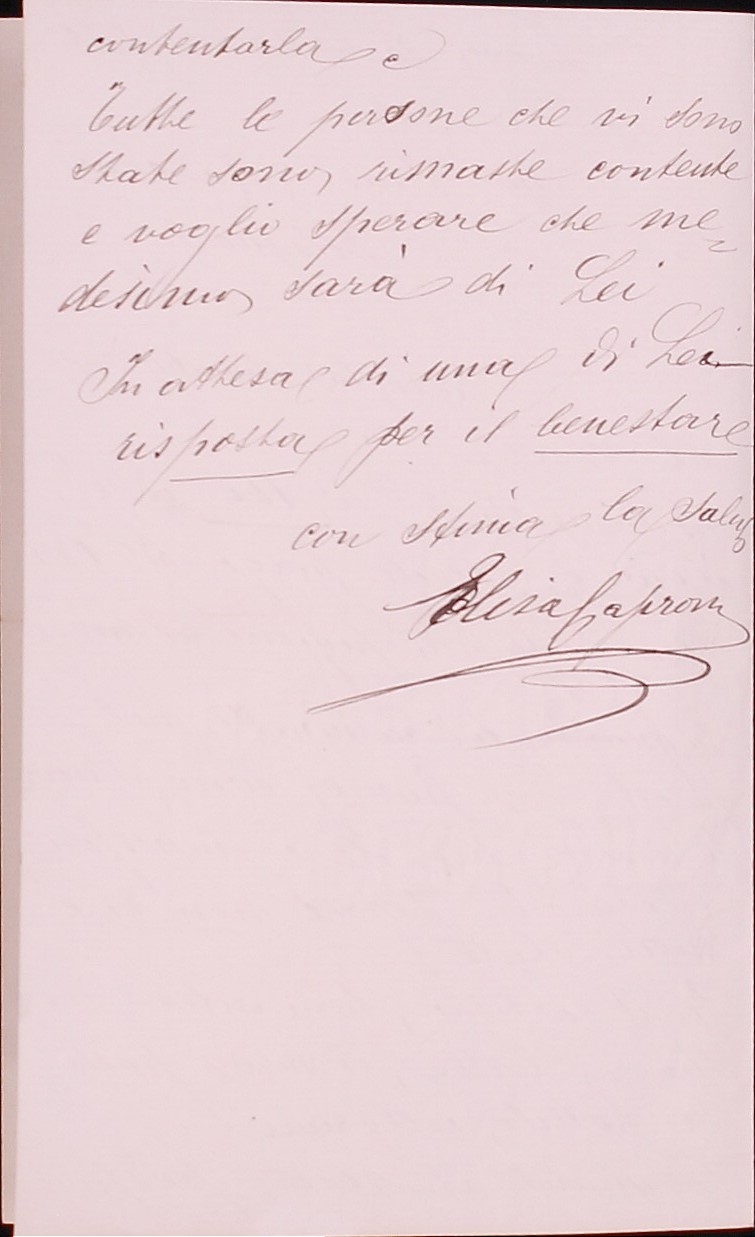 contentarla e
Tutte le persone che vi sono
state sono rimaste contente
e voglio sperare che me=
desimo sarà di Lei
In attesa di una di Lei
risposta per il benestare
con stima la salu
Elisa Caproni